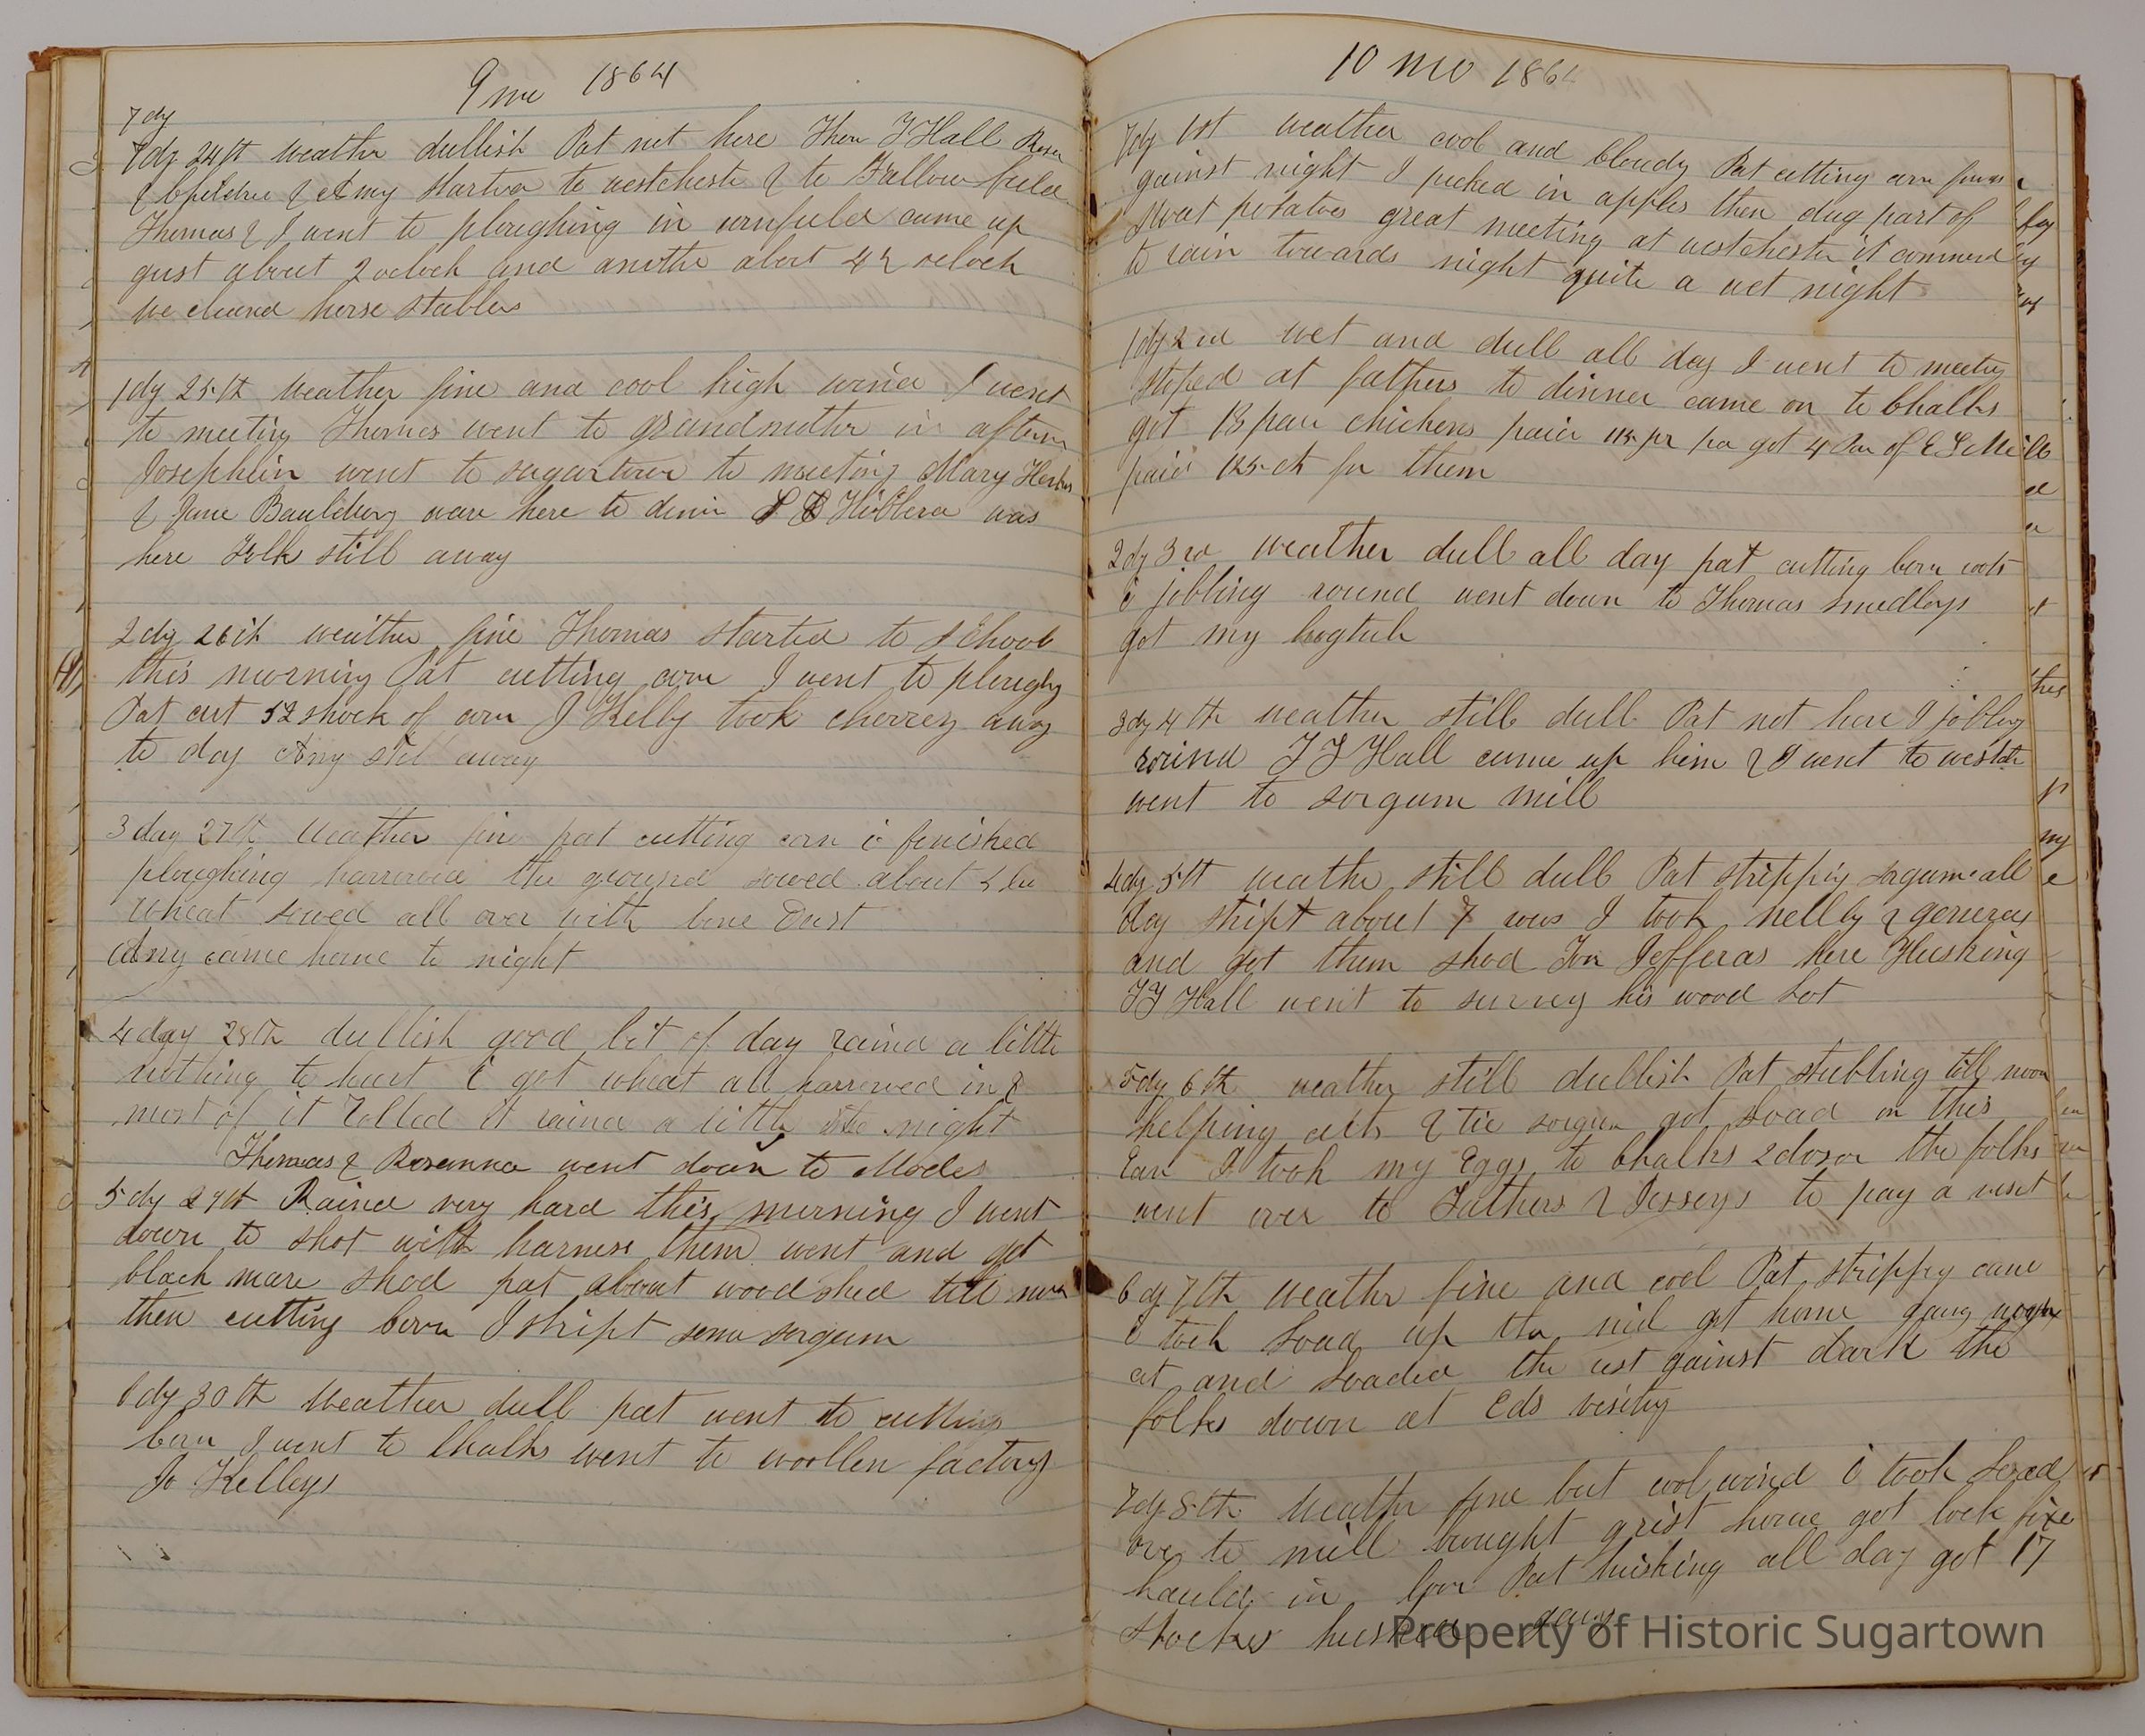 9 mo 1864
7 dy
7dy 24th weather dullish Pat not here Then T Hall Rosa
& Children & Amy started to westchester & to Fallowfield
Thomas & I went to ploughing in cornfield came up
gust about 2 oclock and anothe about 4½ oclock
we cleand horse stables
1dy 25th weather fine and cool high wind I went
to meeting Thomas went to grandmother in aftern
Josephein went to sugartown to meeting Mary
& Jane were here to dinir Hibberd was
here Folk still away
2dy 26th weather fine Thomas started to School
this morning Pat cutting corn I went to ploughg
Pat cut 52 shock of corn J Kelly took cherrey away
to day Amy stil away
3 day 27th Weather fine pat cutting corn i finished
ploughing harrowed the ground sowed about 5 bu
wheat sowed all over with bone Dust
Amy came home to night
4 day 28th dullish good bit of day raind a little
nothing to hurt i got wheat all harrowed in &
most of it rolled it raind a little the night
Thomas & Rosanna went down to Modes
5 dy 29th Raind very hard this morning I went
down to shot with harness them went and got
black mare shod pat about woodshed till noon
then cutting corn I stript some sorgum
6 dy 30th Weather dull pat went to cutting
corn I went to Chalks went to woollen factory
Jo Kelleys
10 mo 1864
7dy 1st weather cool and cloudy Pat cutting corn
gainst night I picked in apples then dug part of
Sweet potatoes great meeting at westchester it commend
to rain towards night quite a wet night
1dy 2nd wet and dull all day I went to meeting
stoped at fathers to dinner came on to Chalks
got 13 pair chickens paid 115 pr pa got 4 pair of E S Mill
paid 125 ct for them
2dy 3rd weather dull all day pat cutting corn
i jobbing round went down to Thomas Smedleys
got my hogtub
3dy 4th weather still dull Pat not here I jobbing
round T J Hall came up him & I went to westch
went to sorgum mill
4dy 5th weather still dull Pat stripping sorgum all
day stript about 7 rows I took nelly & generey
and got them shod Jefferas here Husking
T J Hall went to survey his wood Lot
5dy 6th weather still dullish Pat stubbling till noon
helping cut & tie sorgum got Load on this
Eav I took my Eggs to Chalks 2 dozen the folks
went over to Fathers & Jesseys to pay a visit
6 dy 7th weather fine and cool Pat stripping cane
i took Load up to mill got home
at and Loaded the rest gainst dark the
folks down at Eds visiting
7dy 8th Weather fine but cool wind i took Load
over to mill brought grist home got lock fixe
hauld in Corn Pat husking all day got 17
shocks husked
Property of Historic Sugartown